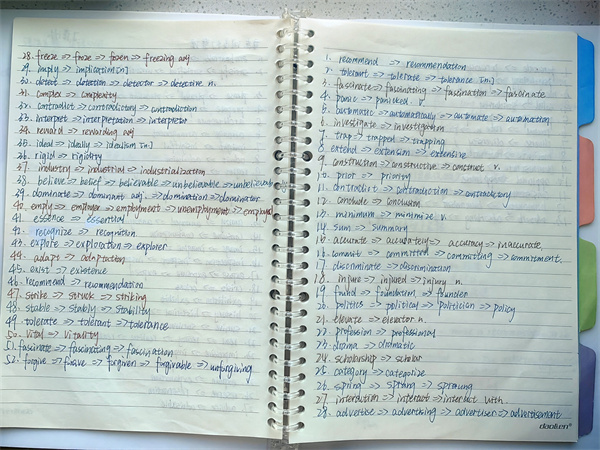 28. freeze => froze => frozen => freezing adj
29. imply => implication [n]
30. detect => detection => detector => detective n.
31. complex => complexity
32. contradict => contradictory => contradiction
33. interpret => interpretation => interpreter
34. reward => rewarding adj
35. ideal => ideally => idealism [n.]
36. rigid => rigistry
37. industry => industrial => industrialization
38. believe => belief => believable => unbelievable => unbelievably
39. dominate => dominant adj. => domination => dominator
40. employ => employer => employment => unemployment => employed
41. essence => essential
42. recognize => recognition
43. explore => exploration => explorer
44. adapt => adaptation
45. exist => existence
46. recommand => recommendation
47. strike => struck => striking
48. stable => stably => stability
49. tolerate => tolerant => tolerance
50. vital => vitality
51. fascinate => fascinating => fascination
52. forgive => forgave => forgiven => forgivable => unforgiving
1. recommend => recommendation
2. tolerant => tolerate => tolerance [n.]
3. fascinate => fascinating => fascination => fascinate
4. panic => panicked v
5. automatic => automatically => automate => automation
6. investigate => investigation
7. trap => trapped => trapping
8. extend => extension => extensive
9. construction => constructive => construct v.
10. prior => priority
11. contradict => contradiction => contradictory
12. conclude => conclusion
13. minimum => minimize v.
14. sum => summary
15. accurate => accurately => accuracy => inaccurate
16. commit => committed => committing => commitment.
17. discriminate => discrimination
18. injure => injured => injury n.
19. found => foundation => founder
20. politics => political => politician => policy
21. elevate => elevator n.
22. profession => professional
23. drama => dramatic
24. scholarship => scholar
25. category => categorize
26. spring => sprang => sprung
27. interaction => interact => interact with
28. advertise => advertising => advertiser => advertisement
daolien®